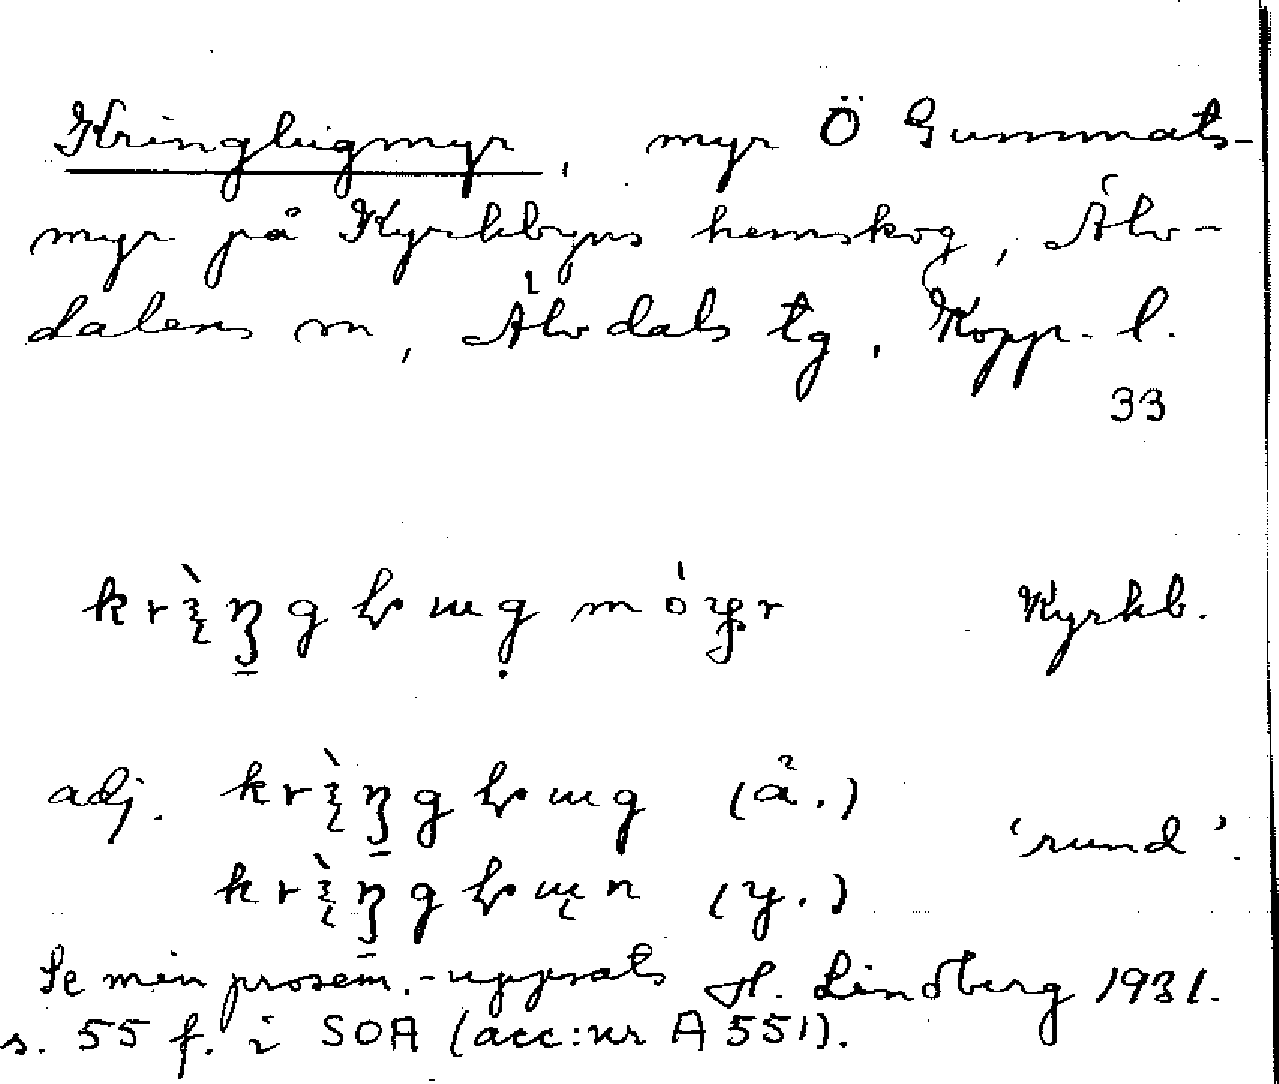 Kringlugmyr, myr Ö Gummats-
myr på Kyrkbyns hemskog, Älv-
dalens sn, Älvdals tg, Kopp. l.
33
Kyrkb.
adj. (ä.)
'rund'.
(y.)
Se min prosem.-uppsats H. Lindberg 1931.
s. 55 f. i SOA (acc:nr A 551).